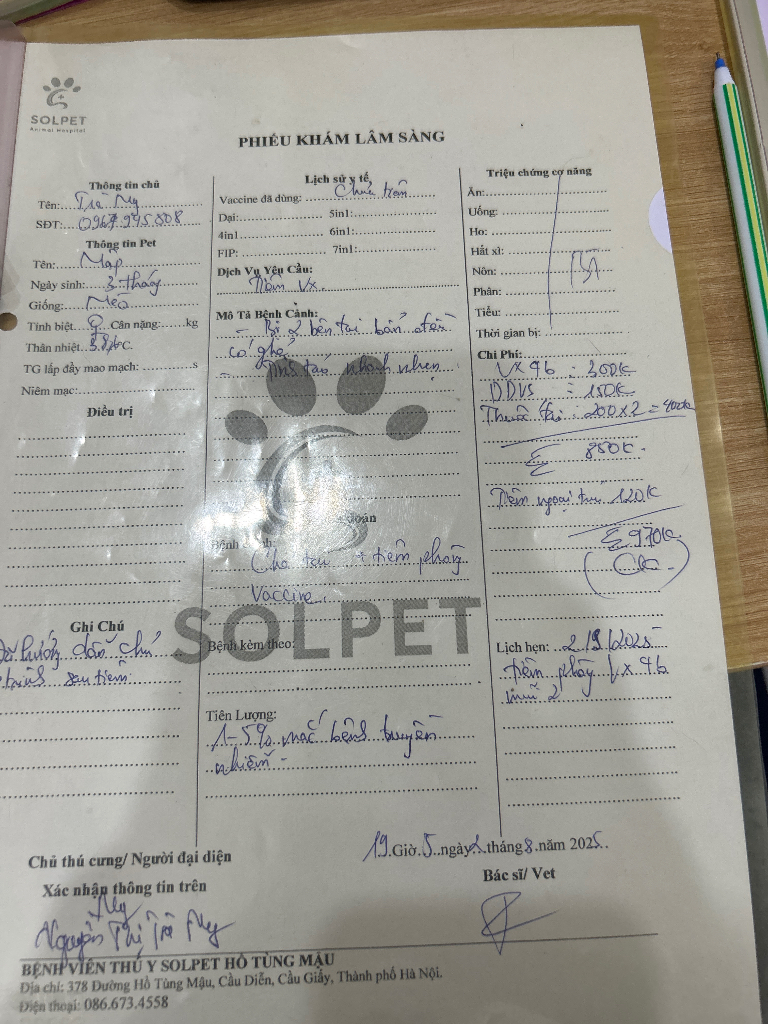 SOLPET
Animal Hospital
PHIẾU KHÁM LÂM SÀNG
Thông tin chủ
Tên: Trà My
SĐT: 0967.995.808
Thông tin Pet
Tên: Mập
Ngày sinh: 3 tháng
Giống: Mèo
Tính biệt ♀ Cân nặng: kg
Thân nhiệt °C
TG lấp đầy mao mạch: s
Niêm mạc:
Điều trị
Ghi Chú
Đã hướng dẫn chủ
sau tiêm
Lịch sử y tế
Vaccine đã dùng: Chưa tiêm
Dại: 5in1:
4in1 6in1:
FIP: 7in1:
Dịch Vụ Yêu Cầu:
Tiêm Vx
Mô Tả Bệnh Cảnh:
- Bị 2 bên tai bẩn
có ghẻ
- nhanh nhẹn
đoán
Bệnh
tai + tiêm phòng
Vaccine
SOLPET
Bệnh kèm theo:
Tiên Lượng:
1-5% mắc bệnh truyền
nhiễm
Triệu chứng cơ năng
Ăn:
Uống:
Ho:
Hắt xì:
Nôn:
Phân:
Tiểu:
Thời gian bị:
Chi Phí:
Vx 4b : 300K
DDVS : 150K
Thuốc : 200x2 = 400K
Σ 850K
Tiêm ngoại trú 120K
Σ 970K
Lịch hẹn: 2/9/2025
Tiêm phòng Vx 4b
mũi 2
19 Giờ 5 ngày 2 tháng 8 năm 2025
Chủ thú cưng/ Người đại diện
Xác nhận thông tin trên
Bác sĩ/ Vet
My
Nguyễn Thị Trà My
BỆNH VIỆN THÚ Y SOLPET HỒ TÙNG MẬU
Địa chỉ: 378 Đường Hồ Tùng Mậu, Cầu Diễn, Cầu Giấy, Thành phố Hà Nội.
Điện thoại: 086.673.4558